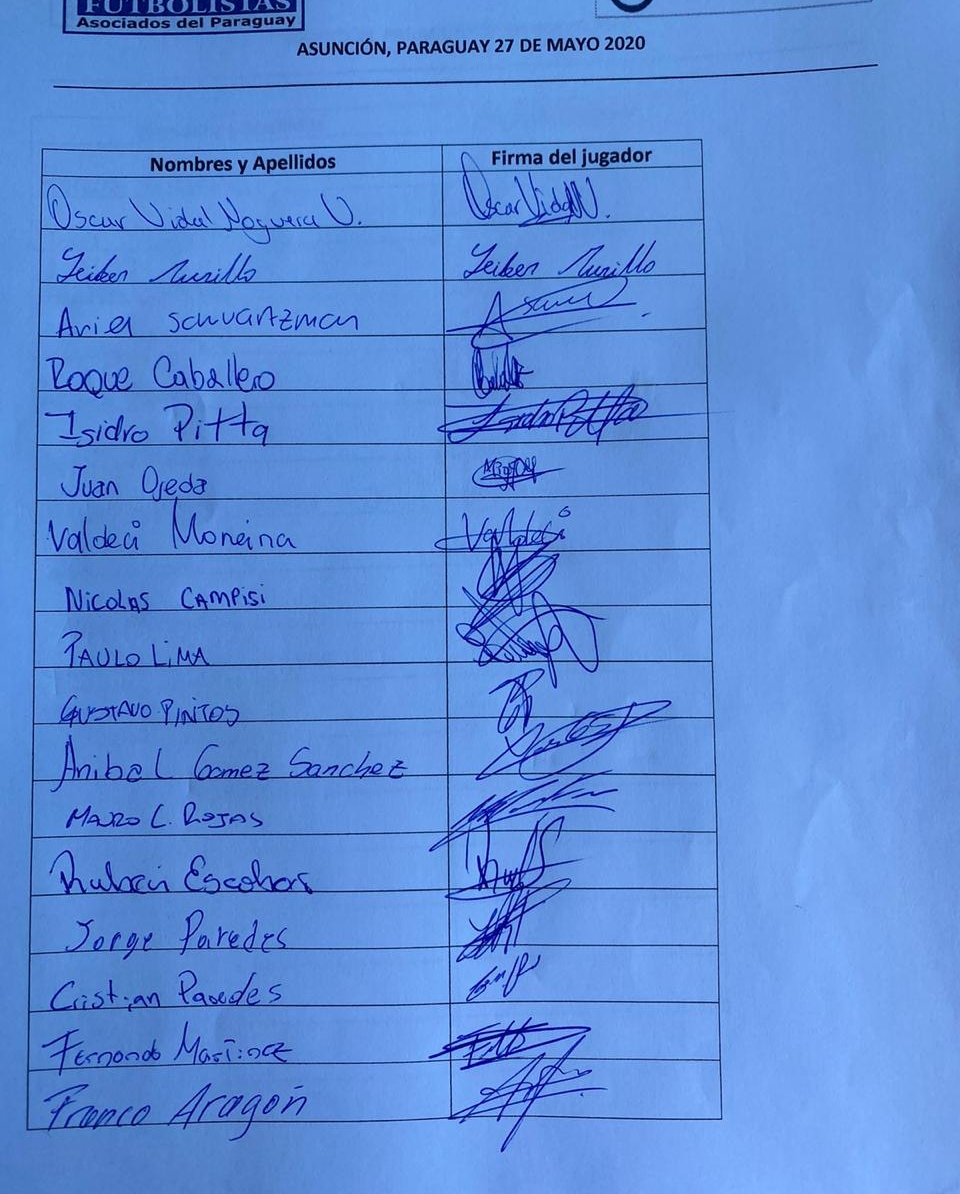 FUTBOLISTAS
Asociados del Paraguay
ASUNCIÓN, PARAGUAY 27 DE MAYO 2020
Nombres y Apellidos Firma del jugador
Oscar Vidal Noguera U. Oscar Vidal N.
Jeiker Murillo Jeiker Murillo
Ariel SCHVARTZMAN
Roque Caballero
Isidro Pitta Isidro Pitta
Juan Ojeda
Valdeci Moreira Valdeci
NICOLAS CAMPISI
PAULO LIMA
GUSTAVO PINTOS
Anibal Gomez Sanchez
MAURO C. ROJAS
Ruben Escobar
Jorge Paredes
Cristian Paredes
Fernando Martinez
Franco Aragón